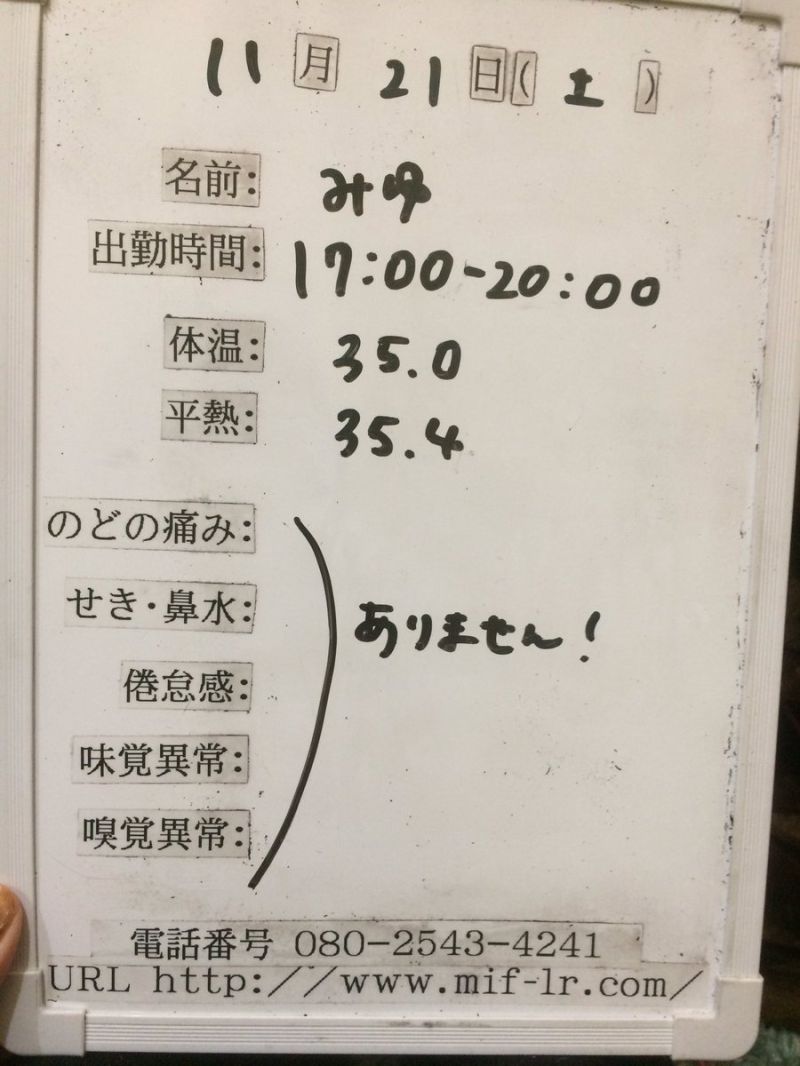 11月21日(土)
名前: みゆ
出勤時間: 17:00-20:00
体温: 35.0
平熱: 35.4
のどの痛み:
せき・鼻水:
ありません!
倦怠感:
味覚異常:
嗅覚異常:
電話番号 080-2543-4241
URL http://www.mif-lr.com/